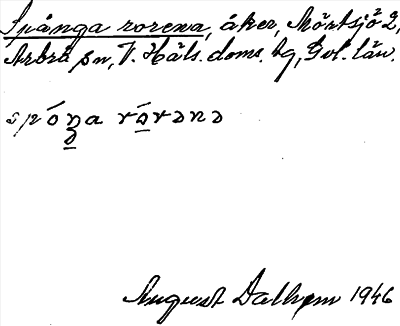 Spånga rorena, åker, Mörtsjö 2,
Arbrå sn, V. Häls. doms. bg, Gvl. län.
spóŋa rórəna
August Dalhem 1946